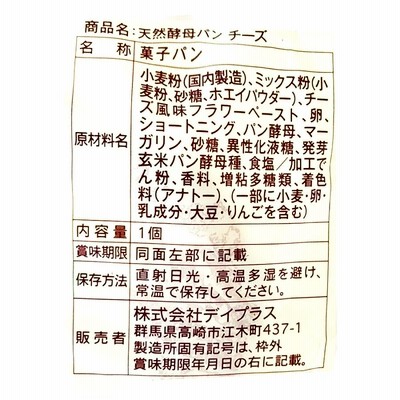 商品名:天然酵母パン チーズ
名 称 菓子パン
原材料名
小麦粉(国内製造)、ミックス粉(小
麦粉、砂糖、ホエイパウダー)、チー
ズ風味フラワーペースト、卵、
ショートニング、パン酵母、マー
ガリン、砂糖、異性化液糖、発芽
玄米パン酵母種、食塩/加工で
ん粉、香料、増粘多糖類、着色
料(アナトー)、(一部に小麦・卵・
乳成分・大豆・りんごを含む)
内容量 1個
賞味期限 同面左部に記載
保存方法
直射日光・高温多湿を避け、
常温で保存してください。
販売者
株式会社デイプラス
群馬県高崎市江木町437-1
製造所固有記号は、枠外
賞味期限年月日の右に記載。